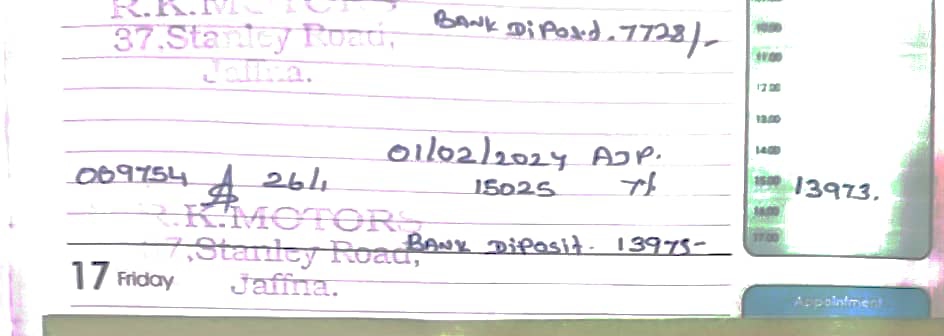 R.K.MOTORS
BANK DiPosd. 7728/-
37.Stanley Road,
Jaffna.
10.00
11.00
12.00
13.00
14.00
15.00
16.00
17.00
01/02/2024 AJP.
069754 26/1 15025 7% 13973.
R.K.MOTORS
7,Stanley Road,
BANK Diposit. 13975-
17 Friday
Jaffna.
Appointment